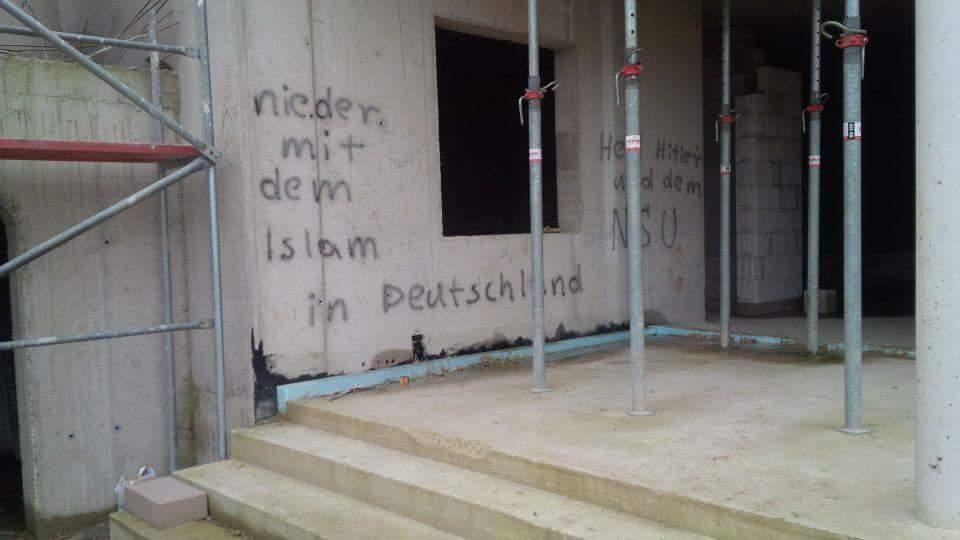 nieder
mit
dem
Islam
in Deutschland
Heil Hitler
und dem
NSU